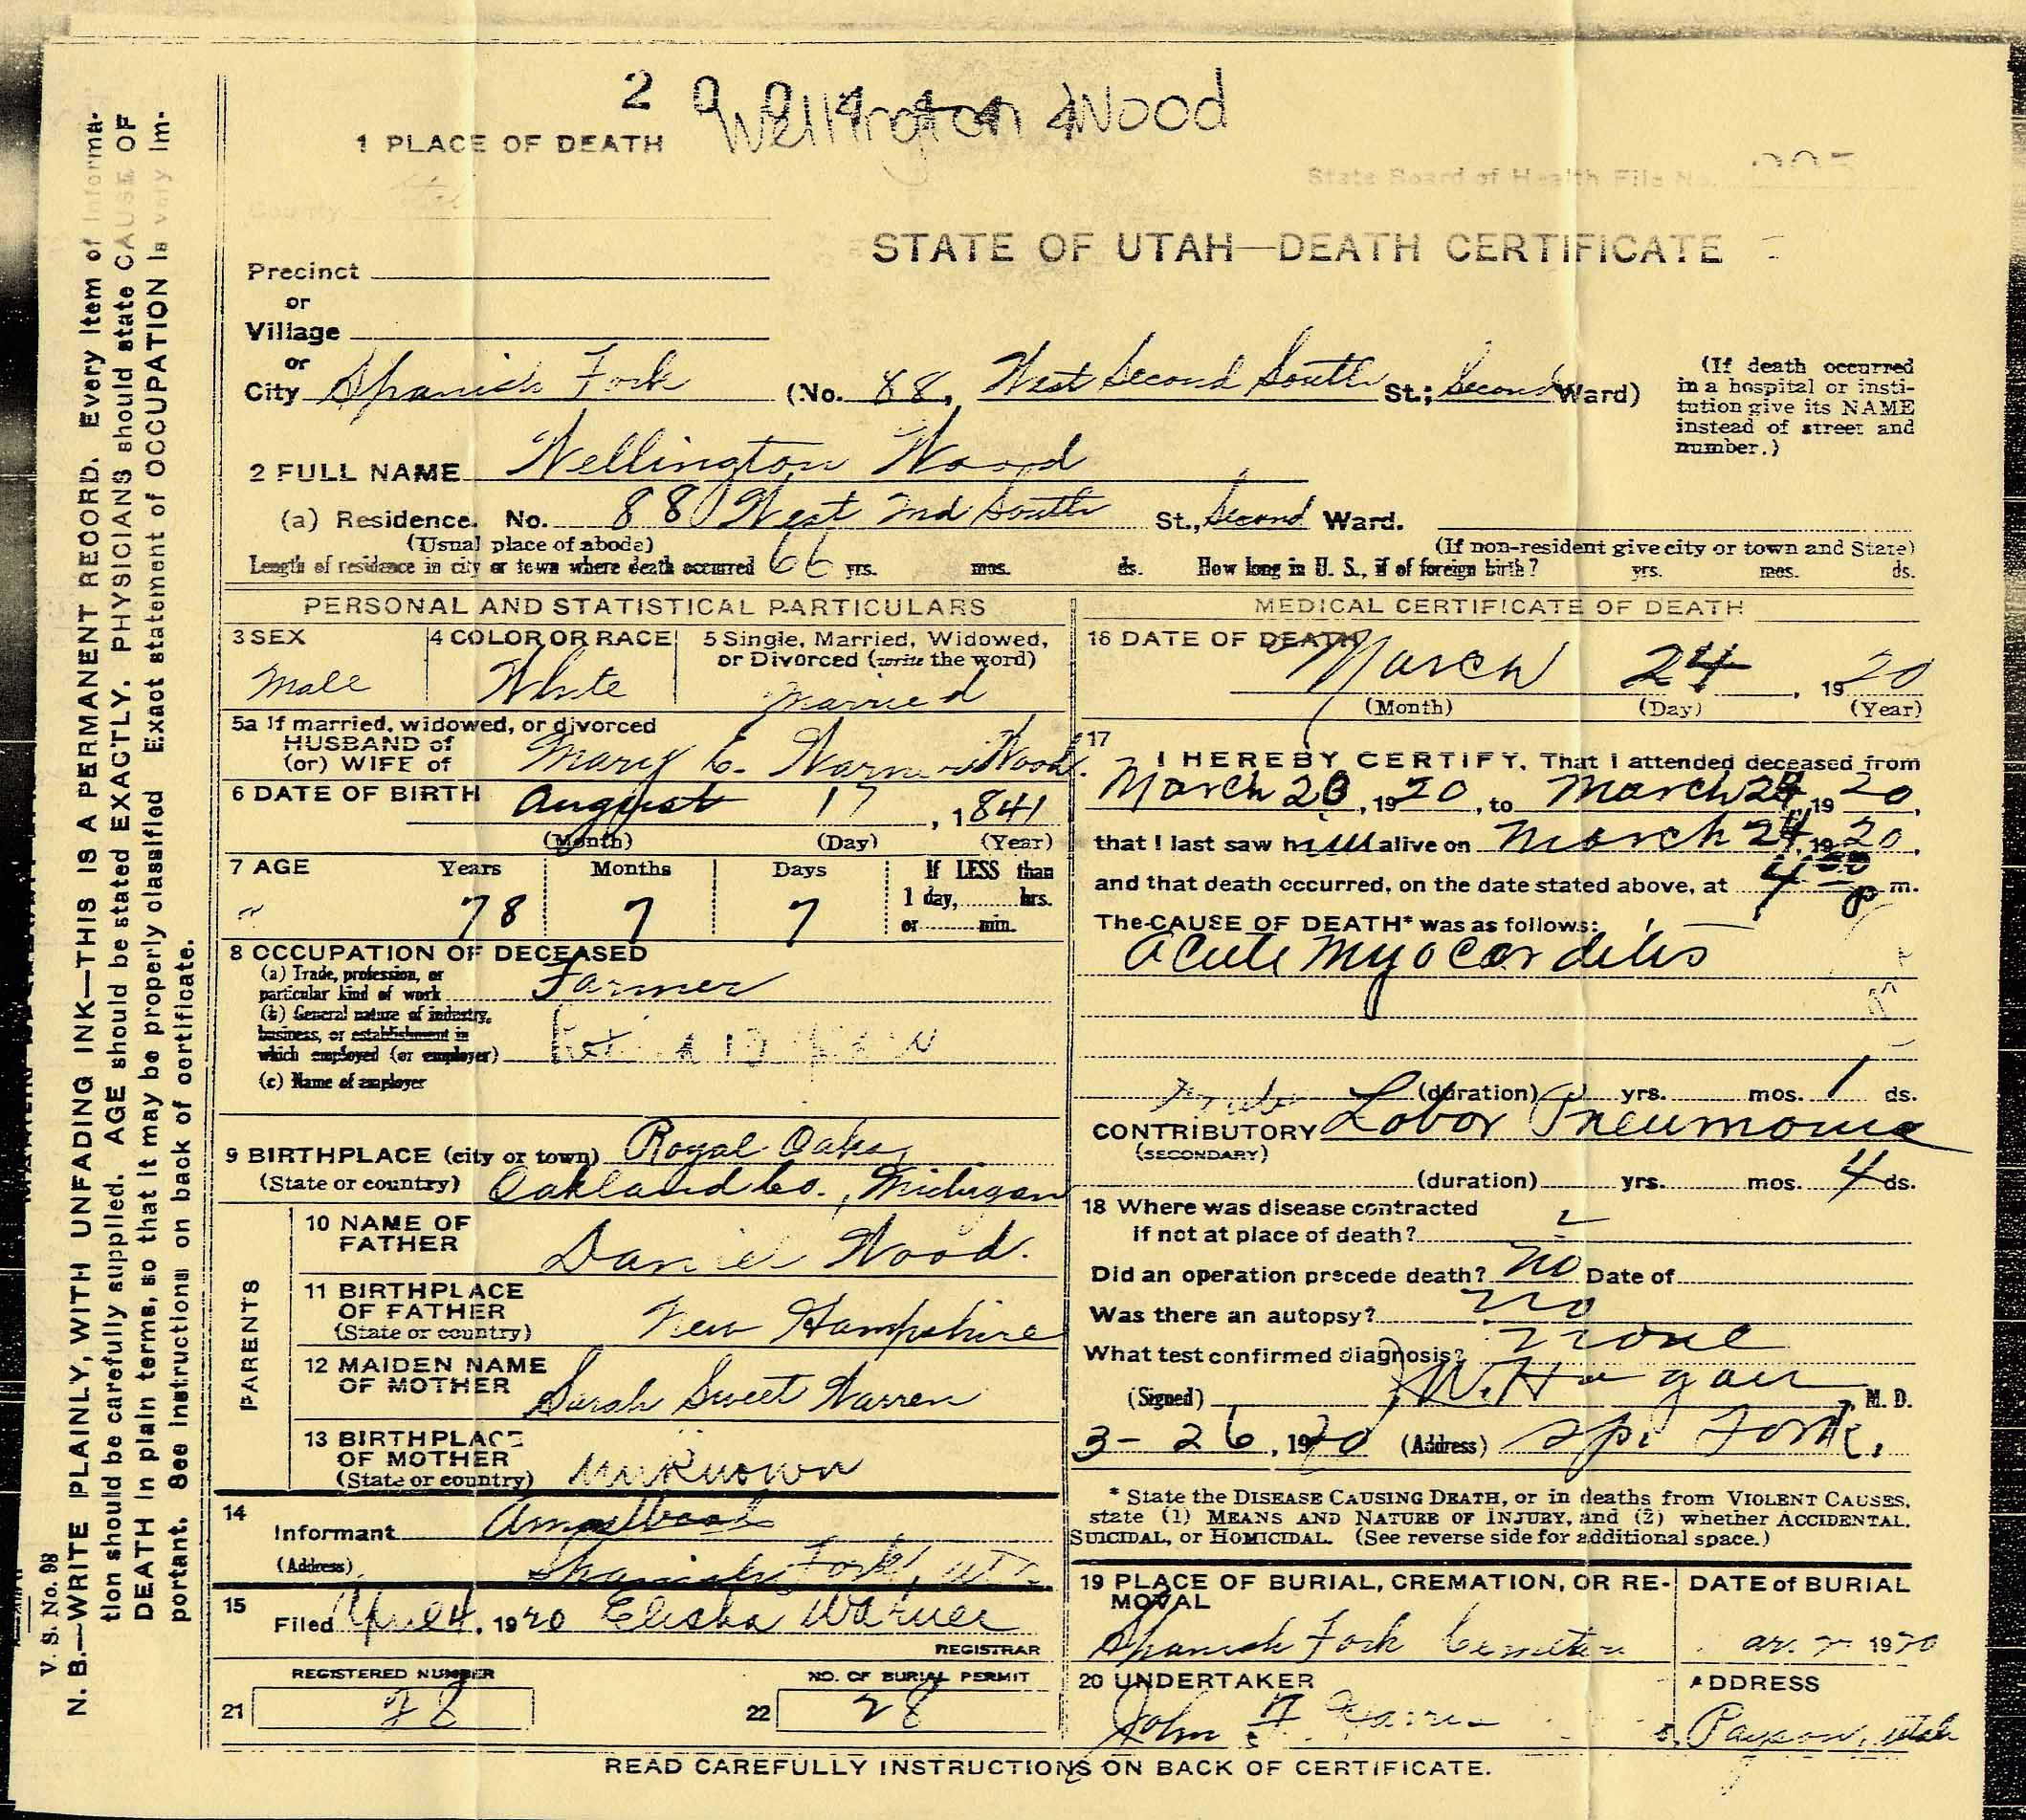 2 Wellington Wood
1 PLACE OF DEATH
State Board of Health File No.
County
STATE OF UTAH—DEATH CERTIFICATE
Precinct
or
Village
or
City Spanish Fork (No. 88, West Second South St.; Second Ward)
(If death occurred in a hospital or insti-
tution give its NAME
instead of street and
number.)
2 FULL NAME Wellington Wood
(a) Residence. No. 88 West 2nd South St., Second Ward.
(Usual place of abode) (If non-resident give city or town and State)
Length of residence in city or town where death occurred 66 yrs. mos. ds. How long in U. S., if of foreign birth? yrs. mos. ds.
PERSONAL AND STATISTICAL PARTICULARS
3 SEX 4 COLOR OR RACE 5 Single, Married, Widowed,
or Divorced (write the word)
Male White Married
5a If married, widowed, or divorced
HUSBAND of
(or) WIFE of Mary E. Warner Wood.
6 DATE OF BIRTH August 17, 1841
(Month) (Day) (Year)
7 AGE Years Months Days If LESS than
1 day, hrs.
or min.
78 7 7
8 OCCUPATION OF DECEASED
(a) Trade, profession, or
particular kind of work Farmer
(b) General nature of industry,
business, or establishment in
which employed (or employer)
(c) Name of employer
9 BIRTHPLACE (city or town) Royal Oaks,
(State or country) Oakland Co., Michigan
PARENTS
10 NAME OF
FATHER Daniel Wood.
11 BIRTHPLACE
OF FATHER
(State or country) New Hampshire
12 MAIDEN NAME
OF MOTHER Sarah Sweet Warren
13 BIRTHPLACE
OF MOTHER
(State or country) unknown
14
Informant
(Address) Spanish Fork, Ut.
15
Filed April 4, 1920 Elisha Warner
REGISTRAR
REGISTERED NUMBER NO. OF BURIAL PERMIT
21 28 22 28
MEDICAL CERTIFICATE OF DEATH
16 DATE OF DEATH March 24, 1920
(Month) (Day) (Year)
17
I HEREBY CERTIFY, That I attended deceased from
March 20, 1920, to March 24, 1920,
that I last saw him alive on March 24, 1920,
and that death occurred, on the date stated above, at 4 00 p m.
The CAUSE OF DEATH* was as follows:
acute myocarditis
(duration) yrs. mos. 1 ds.
CONTRIBUTORY Lobor Pneumonia
(SECONDARY)
(duration) yrs. mos. 4 ds.
18 Where was disease contracted
if not at place of death?
Did an operation precede death? no Date of
Was there an autopsy? no
What test confirmed diagnosis? none
(Signed) W. Hagan M. D.
3-26, 1920 (Address) Sp. Fork,
* State the DISEASE CAUSING DEATH, or in deaths from VIOLENT CAUSES,
state (1) MEANS AND NATURE OF INJURY, and (2) whether ACCIDENTAL,
SUICIDAL, or HOMICIDAL. (See reverse side for additional space.)
19 PLACE OF BURIAL, CREMATION, OR RE-
MOVAL DATE of BURIAL
Spanish Fork Cemetery 1920
20 UNDERTAKER ADDRESS
John Payson, Utah
READ CAREFULLY INSTRUCTIONS ON BACK OF CERTIFICATE.
V. S. No. 98
N. B.—WRITE PLAINLY, WITH UNFADING INK—THIS IS A PERMANENT RECORD. Every item of informa-
tion should be carefully supplied. AGE should be stated EXACTLY. PHYSICIANS should state CAUSE OF
DEATH in plain terms, so that it may be properly classified Exact statement of OCCUPATION is very im-
portant. See instructions on back of certificate.